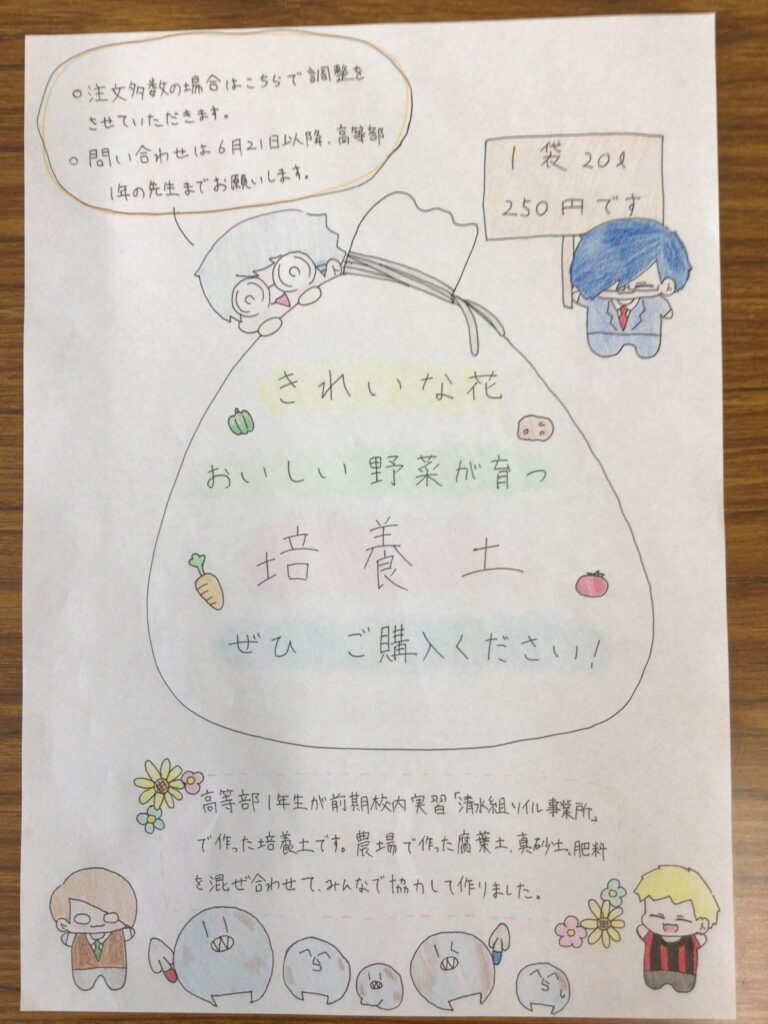 ○ 注文多数の場合はこちらで調整を
させていただきます。
○ 問い合わせは6月21日以降、高等部
1年の先生までお願いします。
1袋 20ℓ
250円です
きれいな花
おいしい野菜が育つ
培養土
ぜひ ご購入ください!
高等部1年生が前期校内実習「清水組ソイル事業所」
で作った培養土です。農場で作った腐葉土、真砂土、肥料
を混ぜ合わせて、みんなで協力して作りました。